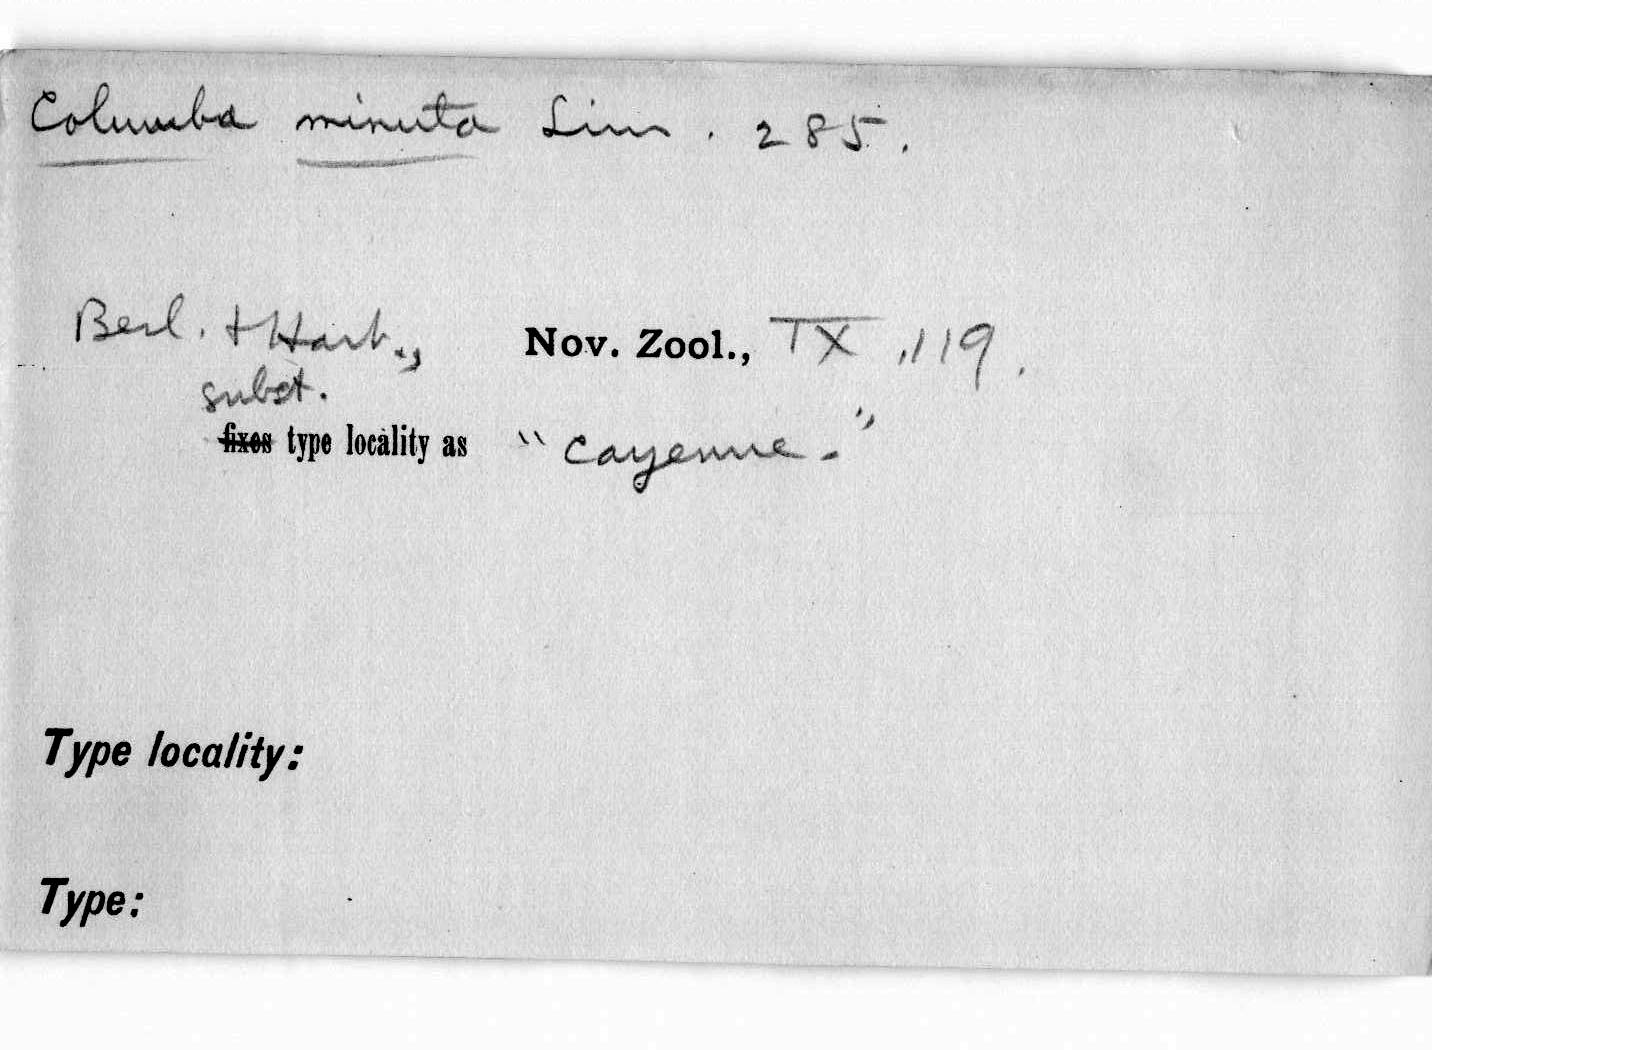 Columba minuta Linn. 285.
Berl. + Hart., Nov. Zool., IX, 119.
subst.
fixes type locality as "Cayenne."
Type locality:
Type: